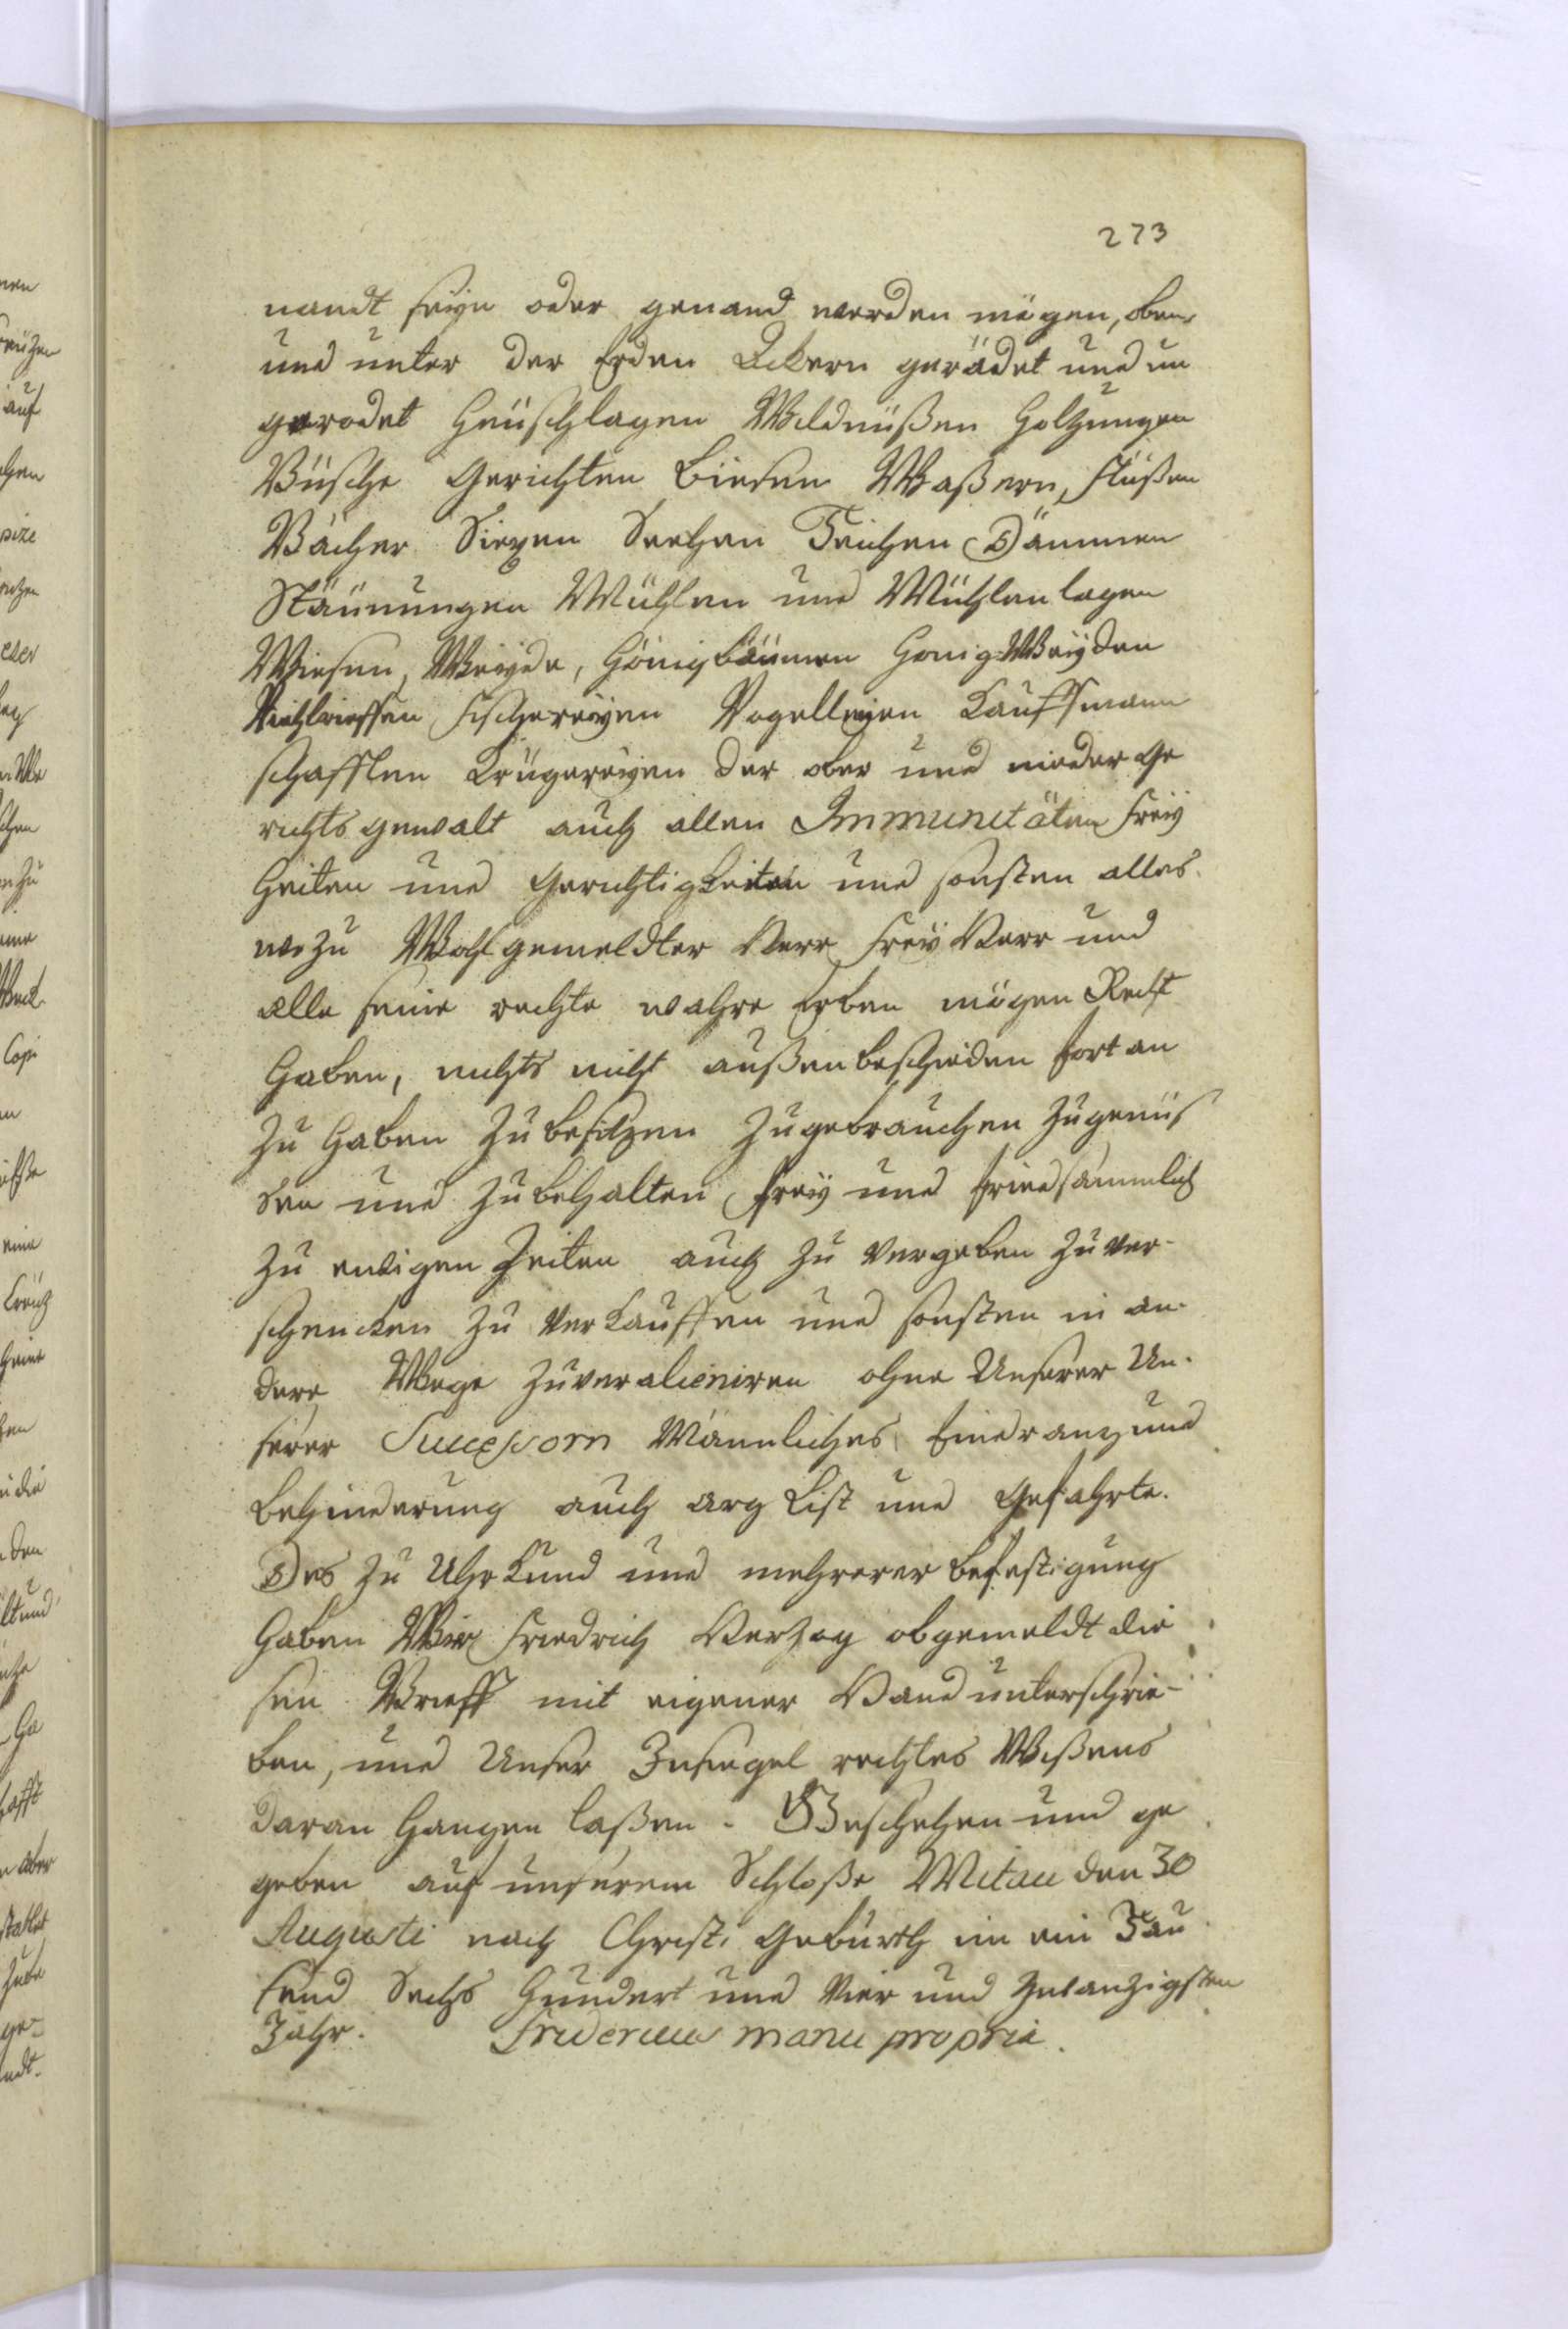 273
nandt seÿn oder genand werden mögen, oben
und unter der Erden Ackern gerädet und un
gerodet Heüschlagen Wildnüßen Holtzungen
Büsche Gerichten Birsen Waßern, flüßen
Bächer Siepen Seehen Teichen Dämmen
Stäuungen Mühlen und Mühlenlagen
Wiesen, Weÿde, Hönigbäumen Honig-Weÿden
Viehtrifften fischereÿen Vogelleÿen Kauffmann
schafften Krügereÿen der ober und nieder Ge
richts gewalt auch allen Immunitäten freÿ
heiten und Gerechtigkeiten und sonsten alles
wozu Wohlgemeldter Herr freÿ Herr und
alle seine rechte wahre Erben mögen Recht
haben, nichts nicht außenbescheiden fortan
zu haben zu besitzen zugebrauchen zugenüß
sen und zu behalten freÿ und friedsämmlich
zu ewigen Zeiten auch zu vergeben zu ver-
schencken zu verkauffen und sonsten in an-
dere Wege zuveralieniren ohne Unserer Un-
serer Successorn Männliches Eindrang und
behinderung auch arg List und Gefahrte.
Des zu Uhrkund und mehrerer befestigung
haben Wir Friedrich Herzog obgemeldt die
sen Brieff mit eigener Hand unterschrie-
ben, und Unser Insiegel rechtes Wißens
daran hangen laßen. Geschehen und ge
geben auf unserem Schloße Mitau den 30
Augusti nach Christi Gebürth im ein Tau
send Sechs Hundert und Vier und Zwanzigsten
Jahr. Fridericus manu propria.